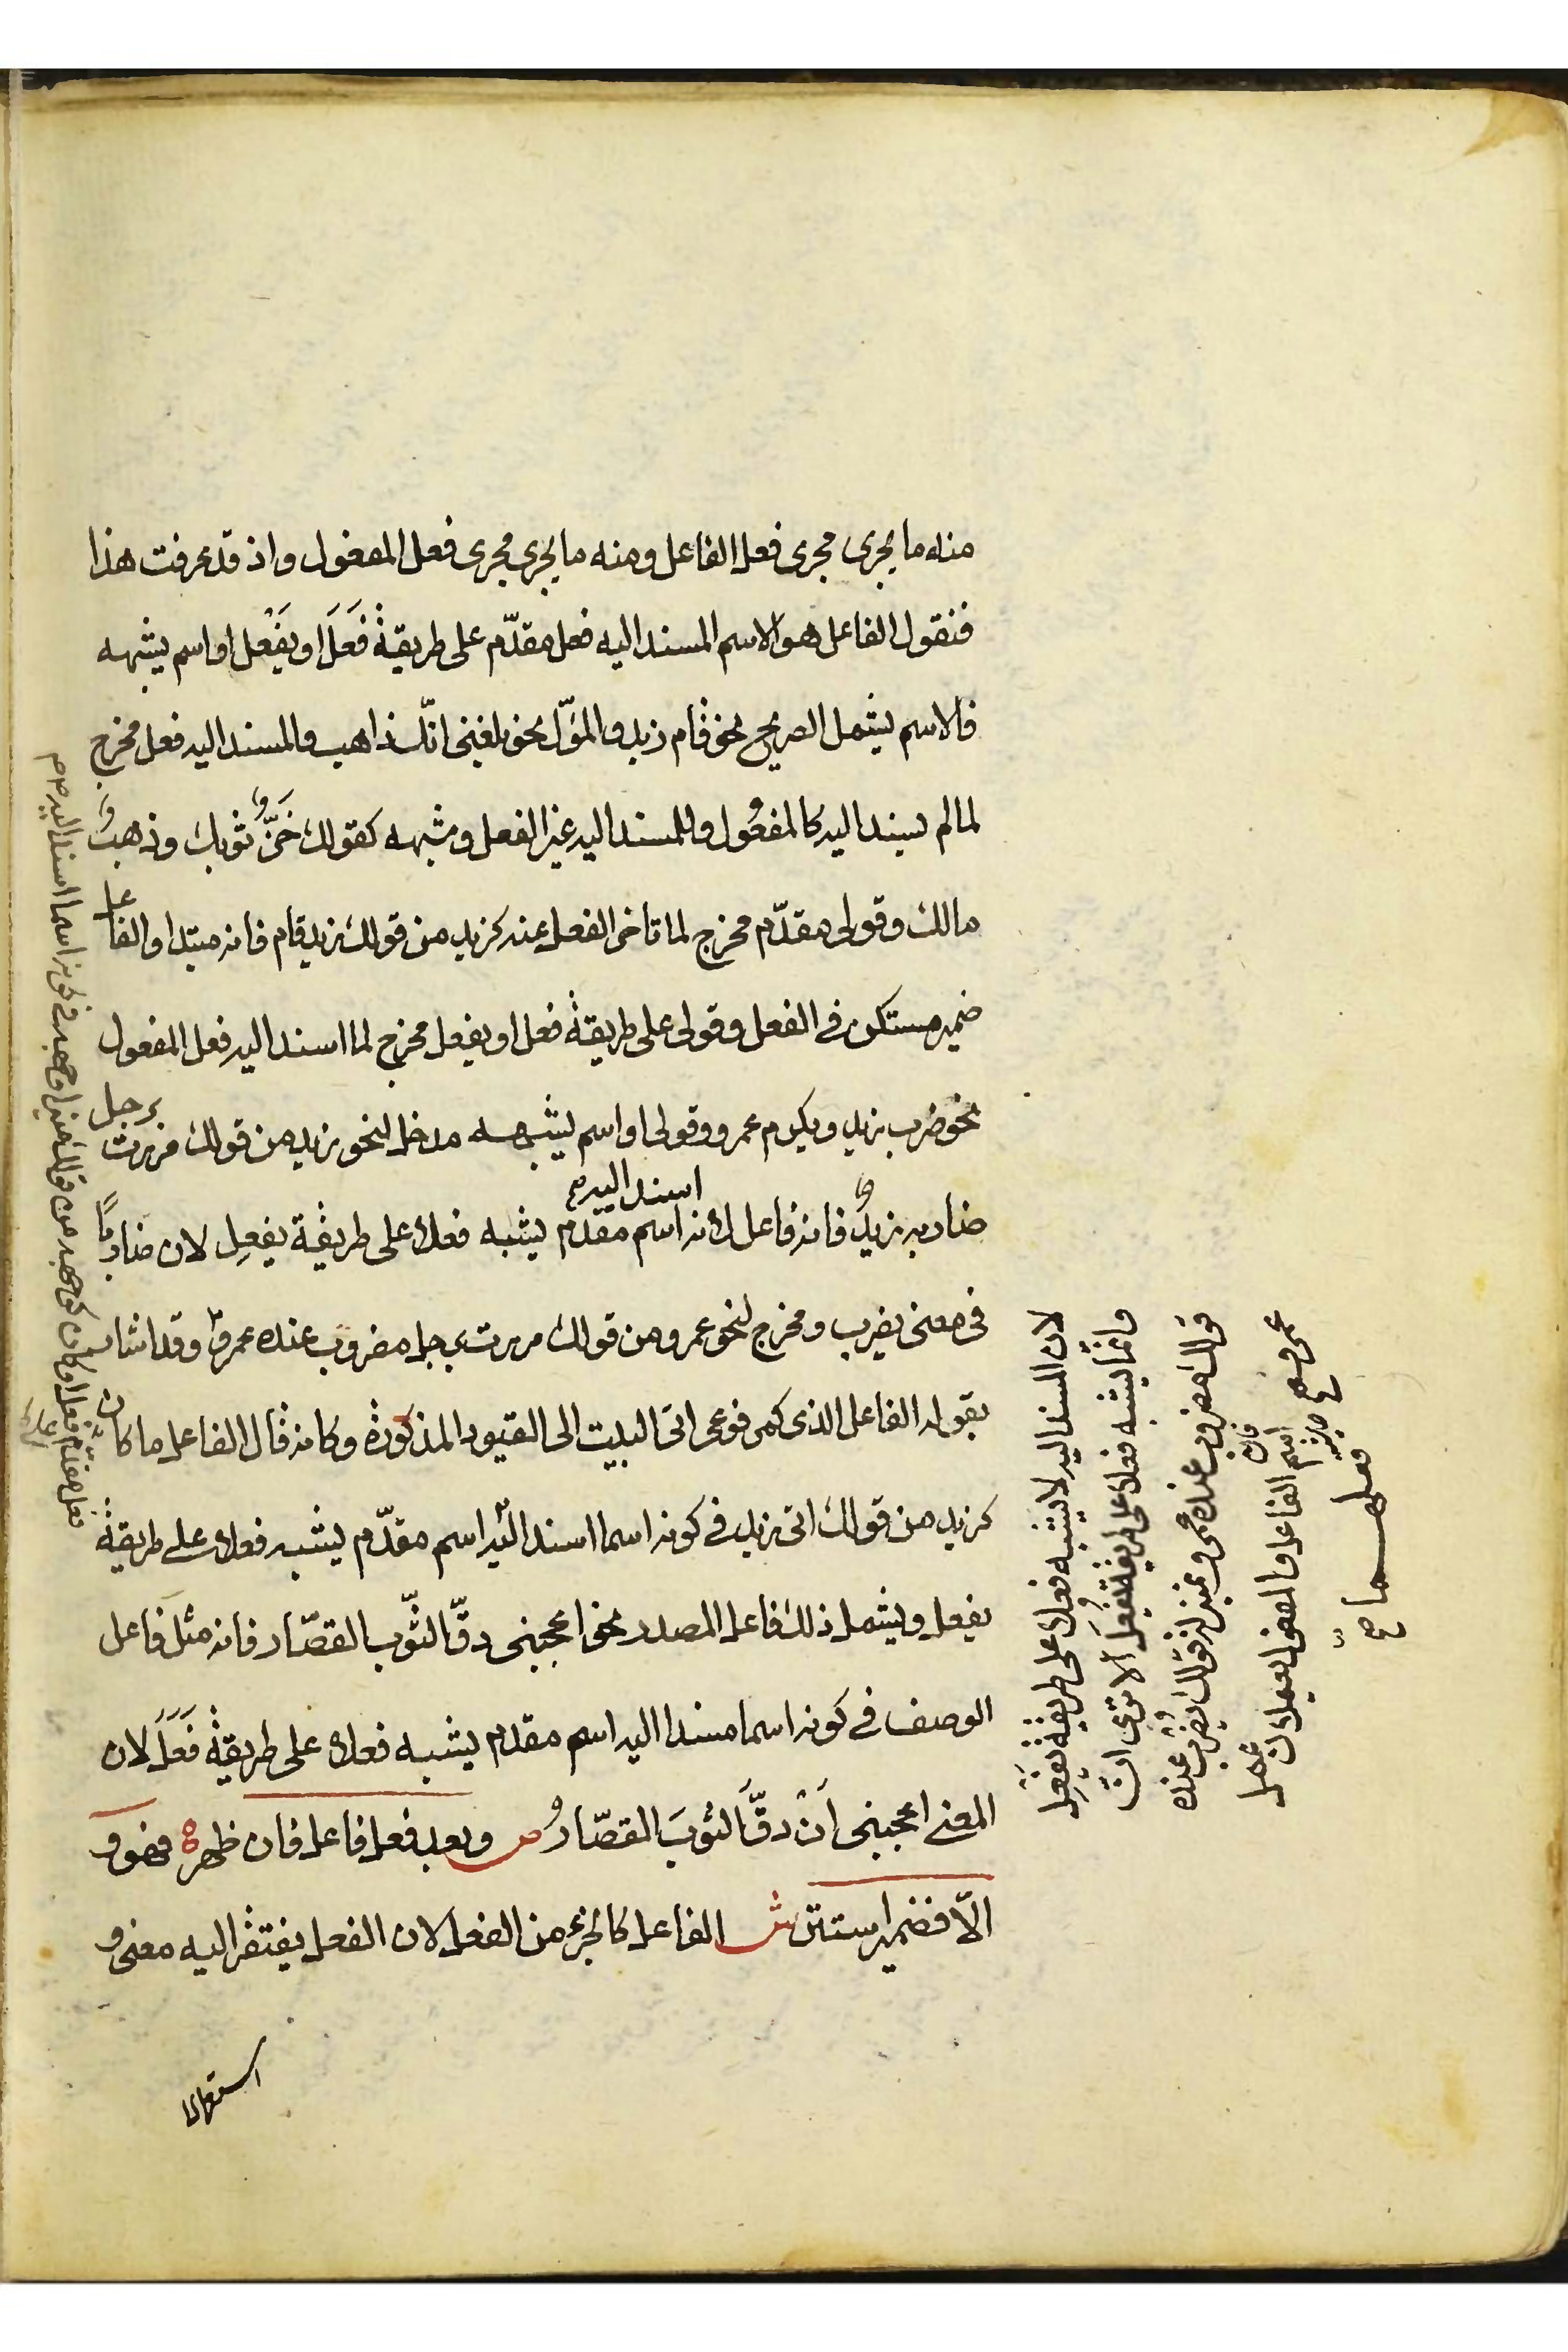 منه ما يجرى مجرى فعل الفاعل ومنه ما يجرى مجرى فعل المفعول واذ قد عرفت هذا
فنقول الفاعل هو الاسم المسند اليه فعل مقدّم على طريقة فَعَلَ او يَفْعل او اسم يشبهه
فالاسم يشمل الصريح نحو قام زيد والمؤّل نحو بلغنى انّك ذاهب والمسند اليه فعل مخرج
لما لم يسند اليه كالمفعول وللمسند اليه غير الفعل وشبهه كقولك خَزٌّ ثوبك وذهبٌ
مالك وقولى مقدّم مخرج لما تاخر الفعل عنه كزيد من قولك زيد قام فانه مبتدا والفاعل
ضمير مستكن فى الفعل وقولى على طريقة فعل او يفعل مخرج لما اسند اليه فعل المفعول
نحو ضرب زيد ويكرم عمرو وقولى او اسم يشبهه مدخل لنحو زيد من قولك مررت برجل
ضاربه زيدٌ فانه فاعل لانه اسم اسند اليه مقدم يشبه فعلا على طريقة يفعِل لان ضاربًا
فى معنى يضرب ومخرج لنحو عمرو من قولك مررت برجل مضروب عنده عمرو وقد اشار
بقوله الفاعل الذى كمرفوعى اتى البيت الى القيود المذكورة وكانه قال الفاعل ما كان
كزيد من قولك اتى زيد فى كونه اسما اسند اليه اسم مقدّم يشبه فعلا على طريقة
يفعل ويشمل ذلك فاعل المصدر نحو اعجبنى دقّ الثّوب القصّار فانه مثل فاعل
الوصف فى كونه اسما مسندا اليه اسم مقدم يشبه فعلا على طريقة فَعَلَ لان
المعنى اعجبنى اَنْ دقّ الثوبَ القصّارُ ص وبعد فعل فاعل فان ظهر فهو و
الّا فضمير استتر ش الفاعل كالجزء من الفعل لان الفعل يفتقر اليه معنى و
لان المسند اليه لا يشبه فعلا على طريقة يَفعِل
وانّما يشبه فعلا على طريقة يُفعَل الا ترى انّ
قولك مضروب عنده عمرو بمنزلة قولك يضرب عنده
عمرو
اسم الفاعل والمفعول يعملان عمل
فعلهما